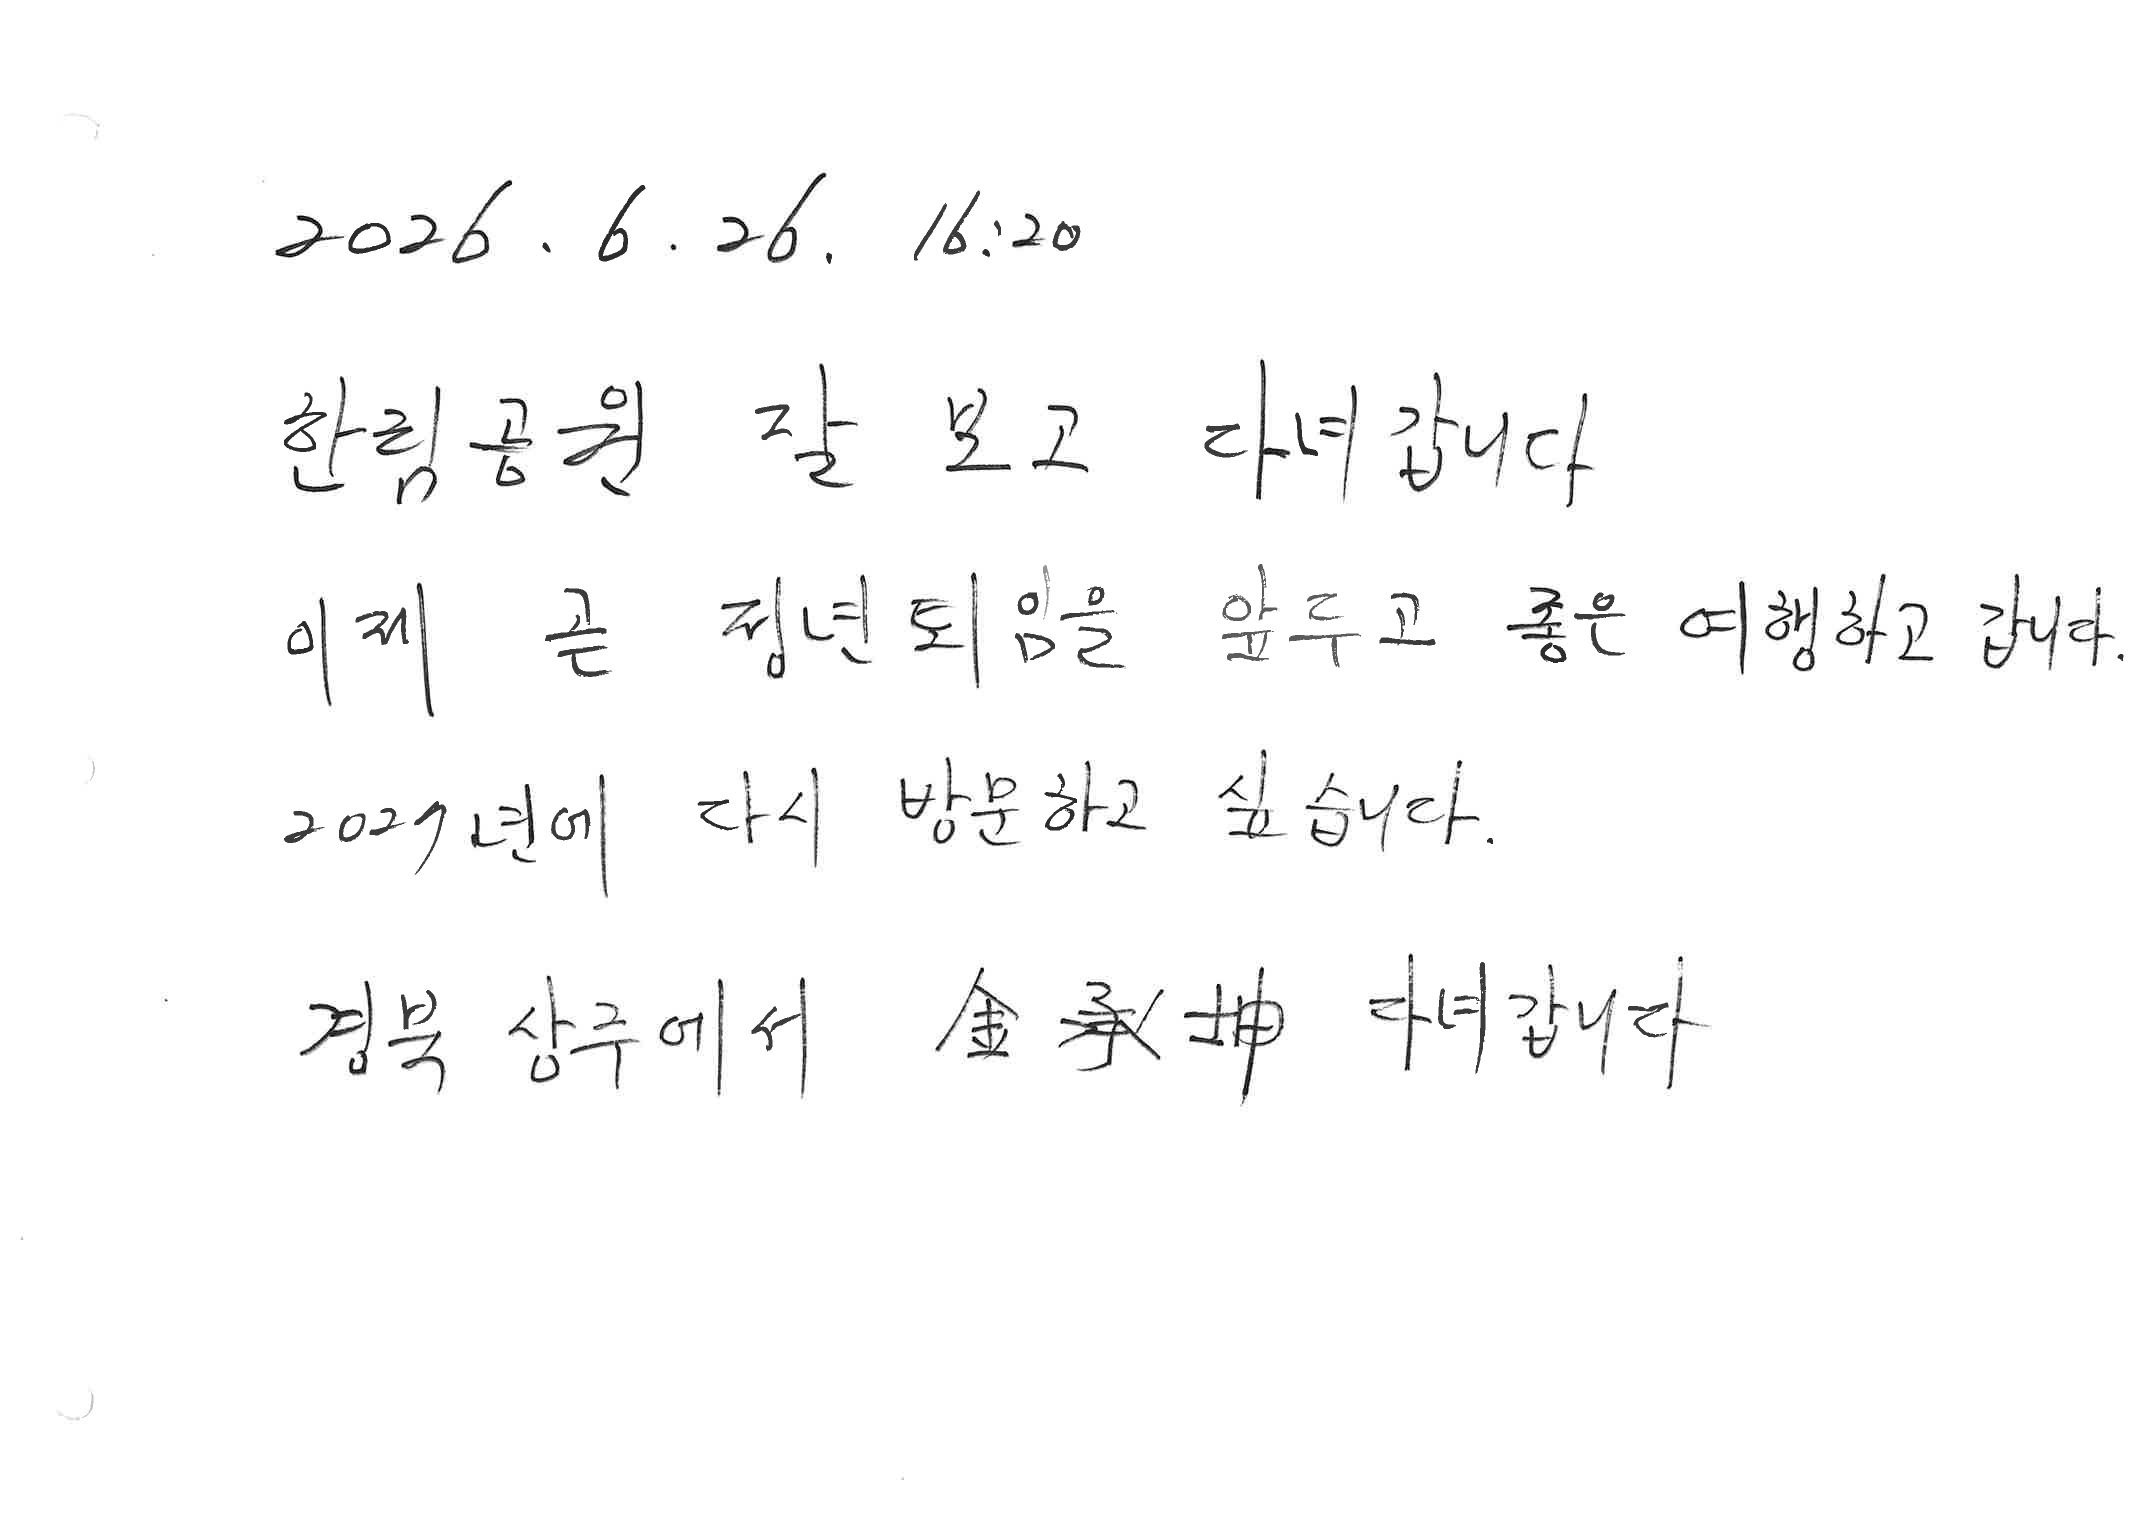 2026. 6. 26. 16:20
한림공원 잘 보고 다녀갑니다
이제 곧 정년퇴임을 앞두고 좋은 여행하고 갑니다.
2027년에 다시 방문하고 싶습니다.
경북 상주에서 金承坤 다녀갑니다